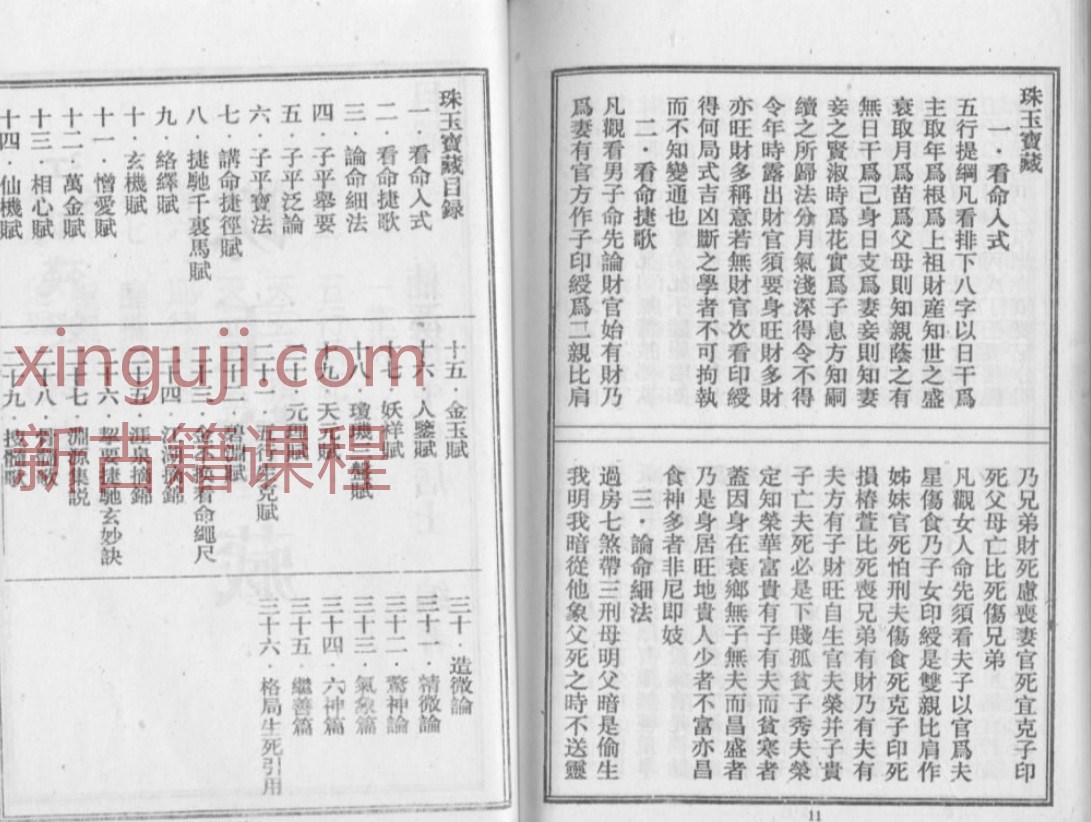 珠玉寶藏
一．看命入式
五行提綱凡看排下八字以日干爲
主取年爲根爲上祖財産知世之盛
衰取月爲苗爲父母則知親蔭之有
無日干爲己身日支爲妻妾則知妻
妾之賢淑時爲花實爲子息方知嗣
續之所歸法分月氣淺深得令不得
令年時露出財官須要身旺財多財
亦旺財多稱意若無財官次看印綬
得何局式吉凶斷之學者不可拘執
而不知變通也
二．看命捷歌
凡觀看男子命先論財官始有財乃
爲妻有官方作子印綬爲二親比肩
乃兄弟財死慮喪妻官死宜克子印
死父母亡比死傷兄弟
凡觀女人命先須看夫子以官爲夫
星傷食乃子女印綬是雙親比肩作
姊妹官死怕刑夫傷食死克子印死
損椿萱比死喪兄弟有財乃有夫有
夫方有子財旺自生官夫榮并子貴
子亡夫死必是下賤孤貧子秀夫榮
定知榮華富貴有子有夫而貧寒者
蓋因身在衰鄉無子無夫而昌盛者
乃是身居旺地貴人少者不富亦昌
食神多者非尼即妓
三．論命細法
過房七煞帶三刑母明父暗是偷生
我明我暗從他象父死之時不送靈
11
珠玉寶藏目録
一．看命入式
二．看命捷歌
三．論命細法
四．子平舉要
五．子平泛論
六．子平寶法
七．講命捷徑賦
八．捷馳千裏馬賦
九．絡繹賦
十．玄機賦
十一．憎愛賦
十二．萬金賦
十三．相心賦
十四．仙機賦
十五．金玉賦
十六．人鑒賦
十七．妖祥賦
十八．瓊璣一盤賦
十九．天元賦
二十．元理賦
二十一．五行生克賦
二十二．碧淵賦
二十三．金不換看命繩尺
二十四．江湖摘錦
二十五．涯泉摘錦
二十六．挈要捷馳玄妙訣
二十七．淵源集説
二十八．歌
二十九．搜髓歌
三十．造微論
三十一．精微論
三十二．驚神論
三十三．氣象篇
三十四．六神篇
三十五．繼善篇
三十六．格局生死引用
xinguji.com
新古籍课程